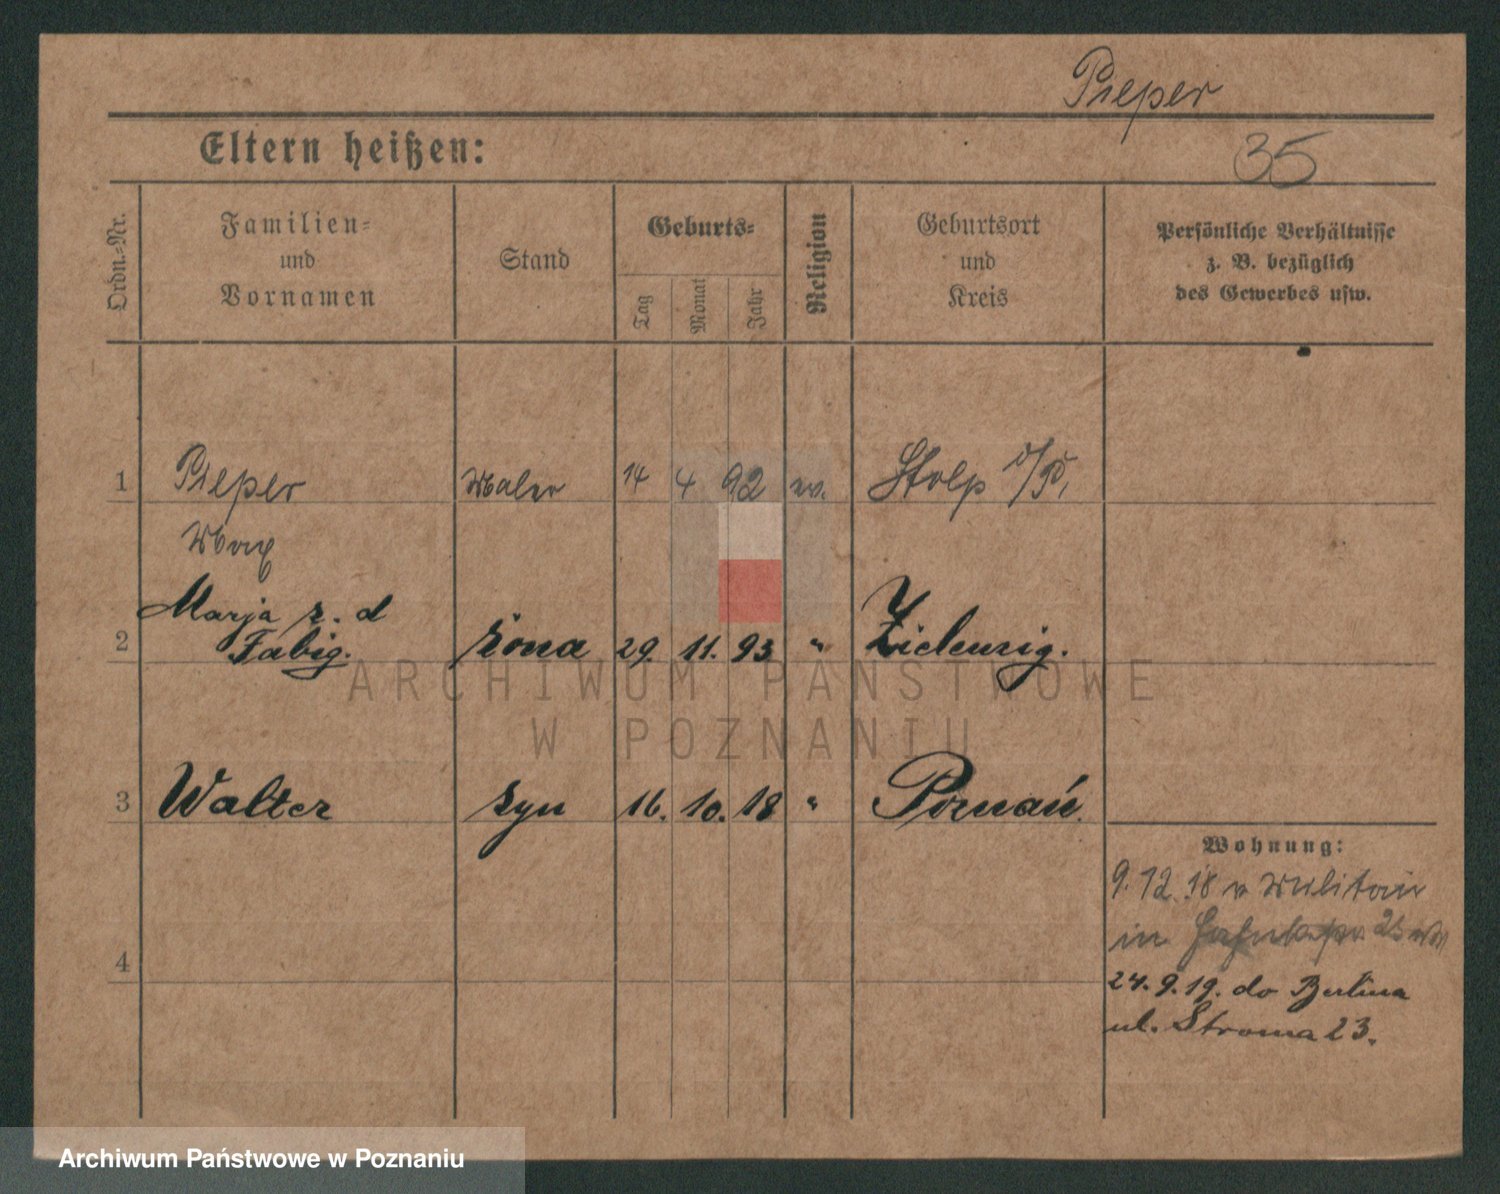 Pieper
Eltern heißen:
35
Ordn.-Nr.
Familien-
und
Vornamen
Stand
Geburts-
Tag
Monat
Jahr
Religion
Geburtsort
und
Kreis
Persönliche Verhältnisse
z. B. bezüglich
des Gewerbes usw.
1 Pieper Maler 14 4 92 ev. Stolp i/P.
Max
Marja z. d
2 Fabig. żona 29. 11. 93 " Zielenzig.
3 Walter syn 16. 10. 18 " Poznań.
Wohnung:
9.12.18 v Militair
in
4
24.9.19. do Berlina
ul. Stroma 23.
ARCHIWUM PAŃSTWOWE
W POZNANIU
Archiwum Państwowe w Poznaniu